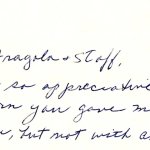 Fragola & Staff,
so appreciative
you gave m
, but not with a